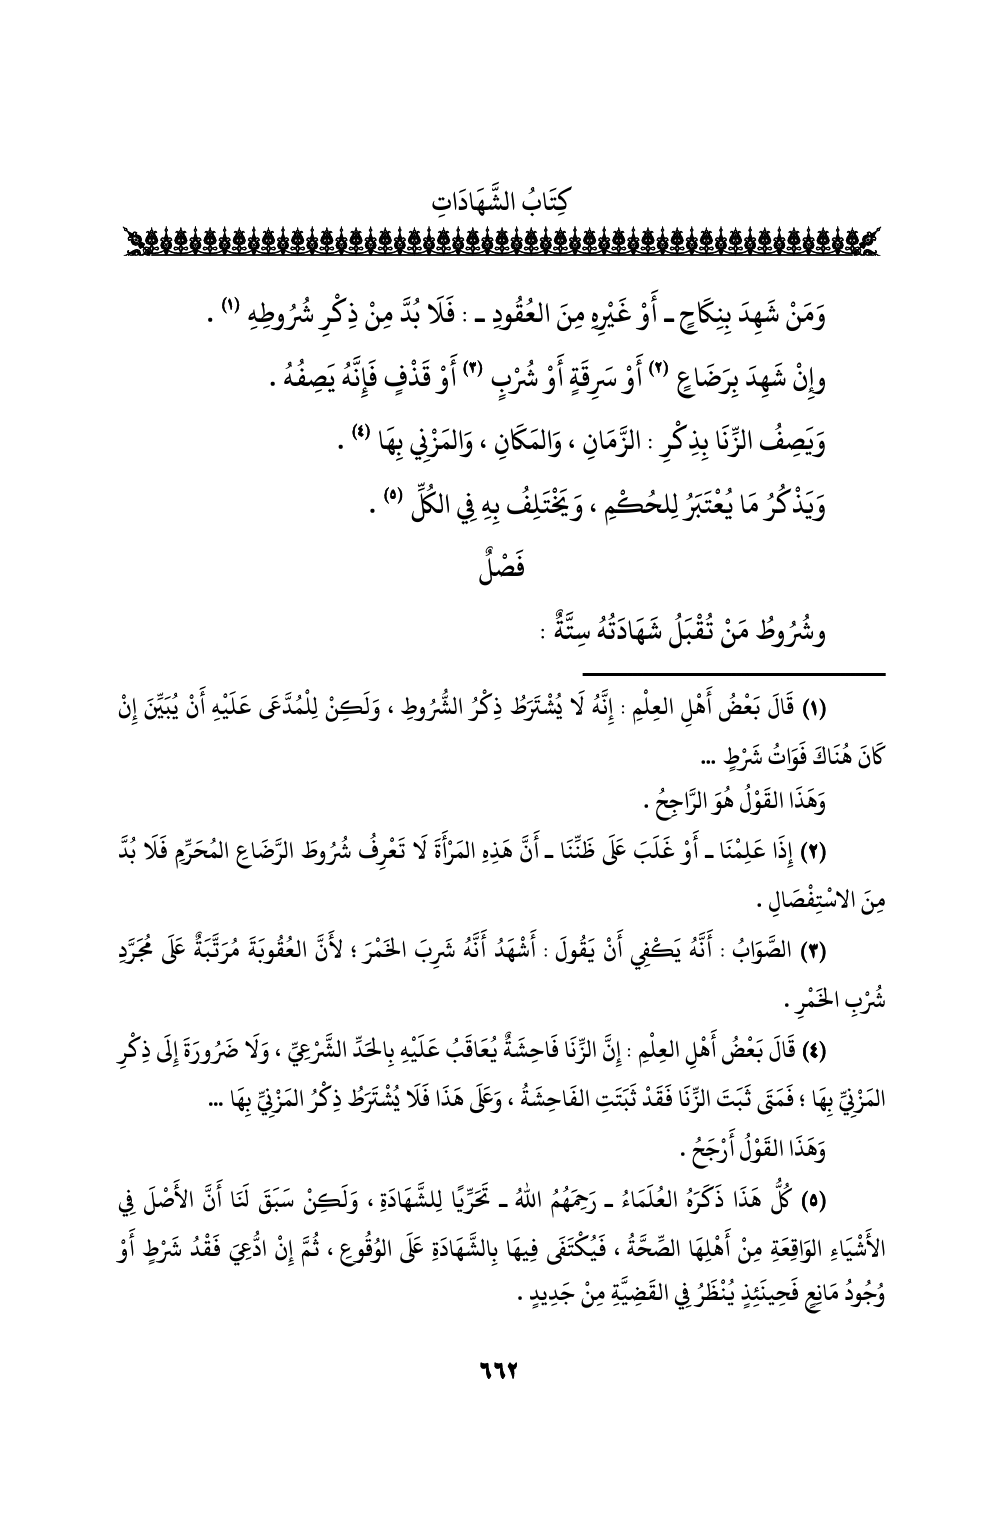 كِتَابُ الشَّهَادَاتِ
وَمَنْ شَهِدَ بِنِكَاحٍ ـ أَوْ غَيْرِهِ مِنَ العُقُودِ ـ : فَلَا بُدَّ مِنْ ذِكْرِ شُرُوطِهِ (١) .
وإِنْ شَهِدَ بِرَضَاعٍ (٢) أَوْ سَرِقَةٍ أَوْ شُرْبٍ (٣) أَوْ قَذْفٍ فَإِنَّهُ يَصِفُهُ .
وَيَصِفُ الزِّنَا بِذِكْرِ : الزَّمَانِ ، وَالمَكَانِ ، وَالمَزْنِي بِهَا (٤) .
وَيَذْكُرُ مَا يُعْتَبَرُ لِلحُكْمِ ، وَيَخْتَلِفُ بِهِ فِي الكُلِّ (٥) .
فَصْلٌ
وشُرُوطُ مَنْ تُقْبَلُ شَهَادَتُهُ سِتَّةٌ :
(١) قَالَ بَعْضُ أَهْلِ العِلْمِ : إِنَّهُ لَا يُشْتَرَطُ ذِكْرُ الشُّرُوطِ ، وَلَكِنْ لِلْمُدَّعَى عَلَيْهِ أَنْ يُبَيِّنَ إِنْ
كَانَ هُنَاكَ فَوَاتُ شَرْطٍ ...
وَهَذَا القَوْلُ هُوَ الرَّاجِحُ .
(٢) إِذَا عَلِمْنَا ـ أَوْ غَلَبَ عَلَى ظَنِّنَا ـ أَنَّ هَذِهِ المَرْأَةَ لَا تَعْرِفُ شُرُوطَ الرَّضَاعِ المُحَرِّمِ فَلَا بُدَّ
مِنَ الاسْتِفْصَالِ .
(٣) الصَّوَابُ : أَنَّهُ يَكْفِي أَنْ يَقُولَ : أَشْهَدُ أَنَّهُ شَرِبَ الخَمْرَ ؛ لأَنَّ العُقُوبَةَ مُرَتَّبَةٌ عَلَى مُجَرَّدِ
شُرْبِ الخَمْرِ .
(٤) قَالَ بَعْضُ أَهْلِ العِلْمِ : إِنَّ الزِّنَا فَاحِشَةٌ يُعَاقَبُ عَلَيْهِ بِالحَدِّ الشَّرْعِيِّ ، وَلَا ضَرُورَةَ إِلَى ذِكْرِ
المَزْنِيِّ بِهَا ؛ فَمَتَى ثَبَتَ الزِّنَا فَقَدْ ثَبَتَتِ الفَاحِشَةُ ، وَعَلَى هَذَا فَلَا يُشْتَرَطُ ذِكْرُ المَزْنِيِّ بِهَا ...
وَهَذَا القَوْلُ أَرْجَحُ .
(٥) كُلُّ هَذَا ذَكَرَهُ العُلَمَاءُ ـ رَحِمَهُمُ اللهُ ـ تَحَرِّيًا لِلشَّهَادَةِ ، وَلَكِنْ سَبَقَ لَنَا أَنَّ الأَصْلَ فِي
الأَشْيَاءِ الوَاقِعَةِ مِنْ أَهْلِهَا الصِّحَّةُ ، فَيُكْتَفَى فِيهَا بِالشَّهَادَةِ عَلَى الوُقُوعِ ، ثُمَّ إِنْ ادُّعِيَ فَقْدُ شَرْطٍ أَوْ
وُجُودُ مَانِعٍ فَحِينَئِذٍ يُنْظَرُ فِي القَضِيَّةِ مِنْ جَدِيدٍ .
٦٦٢